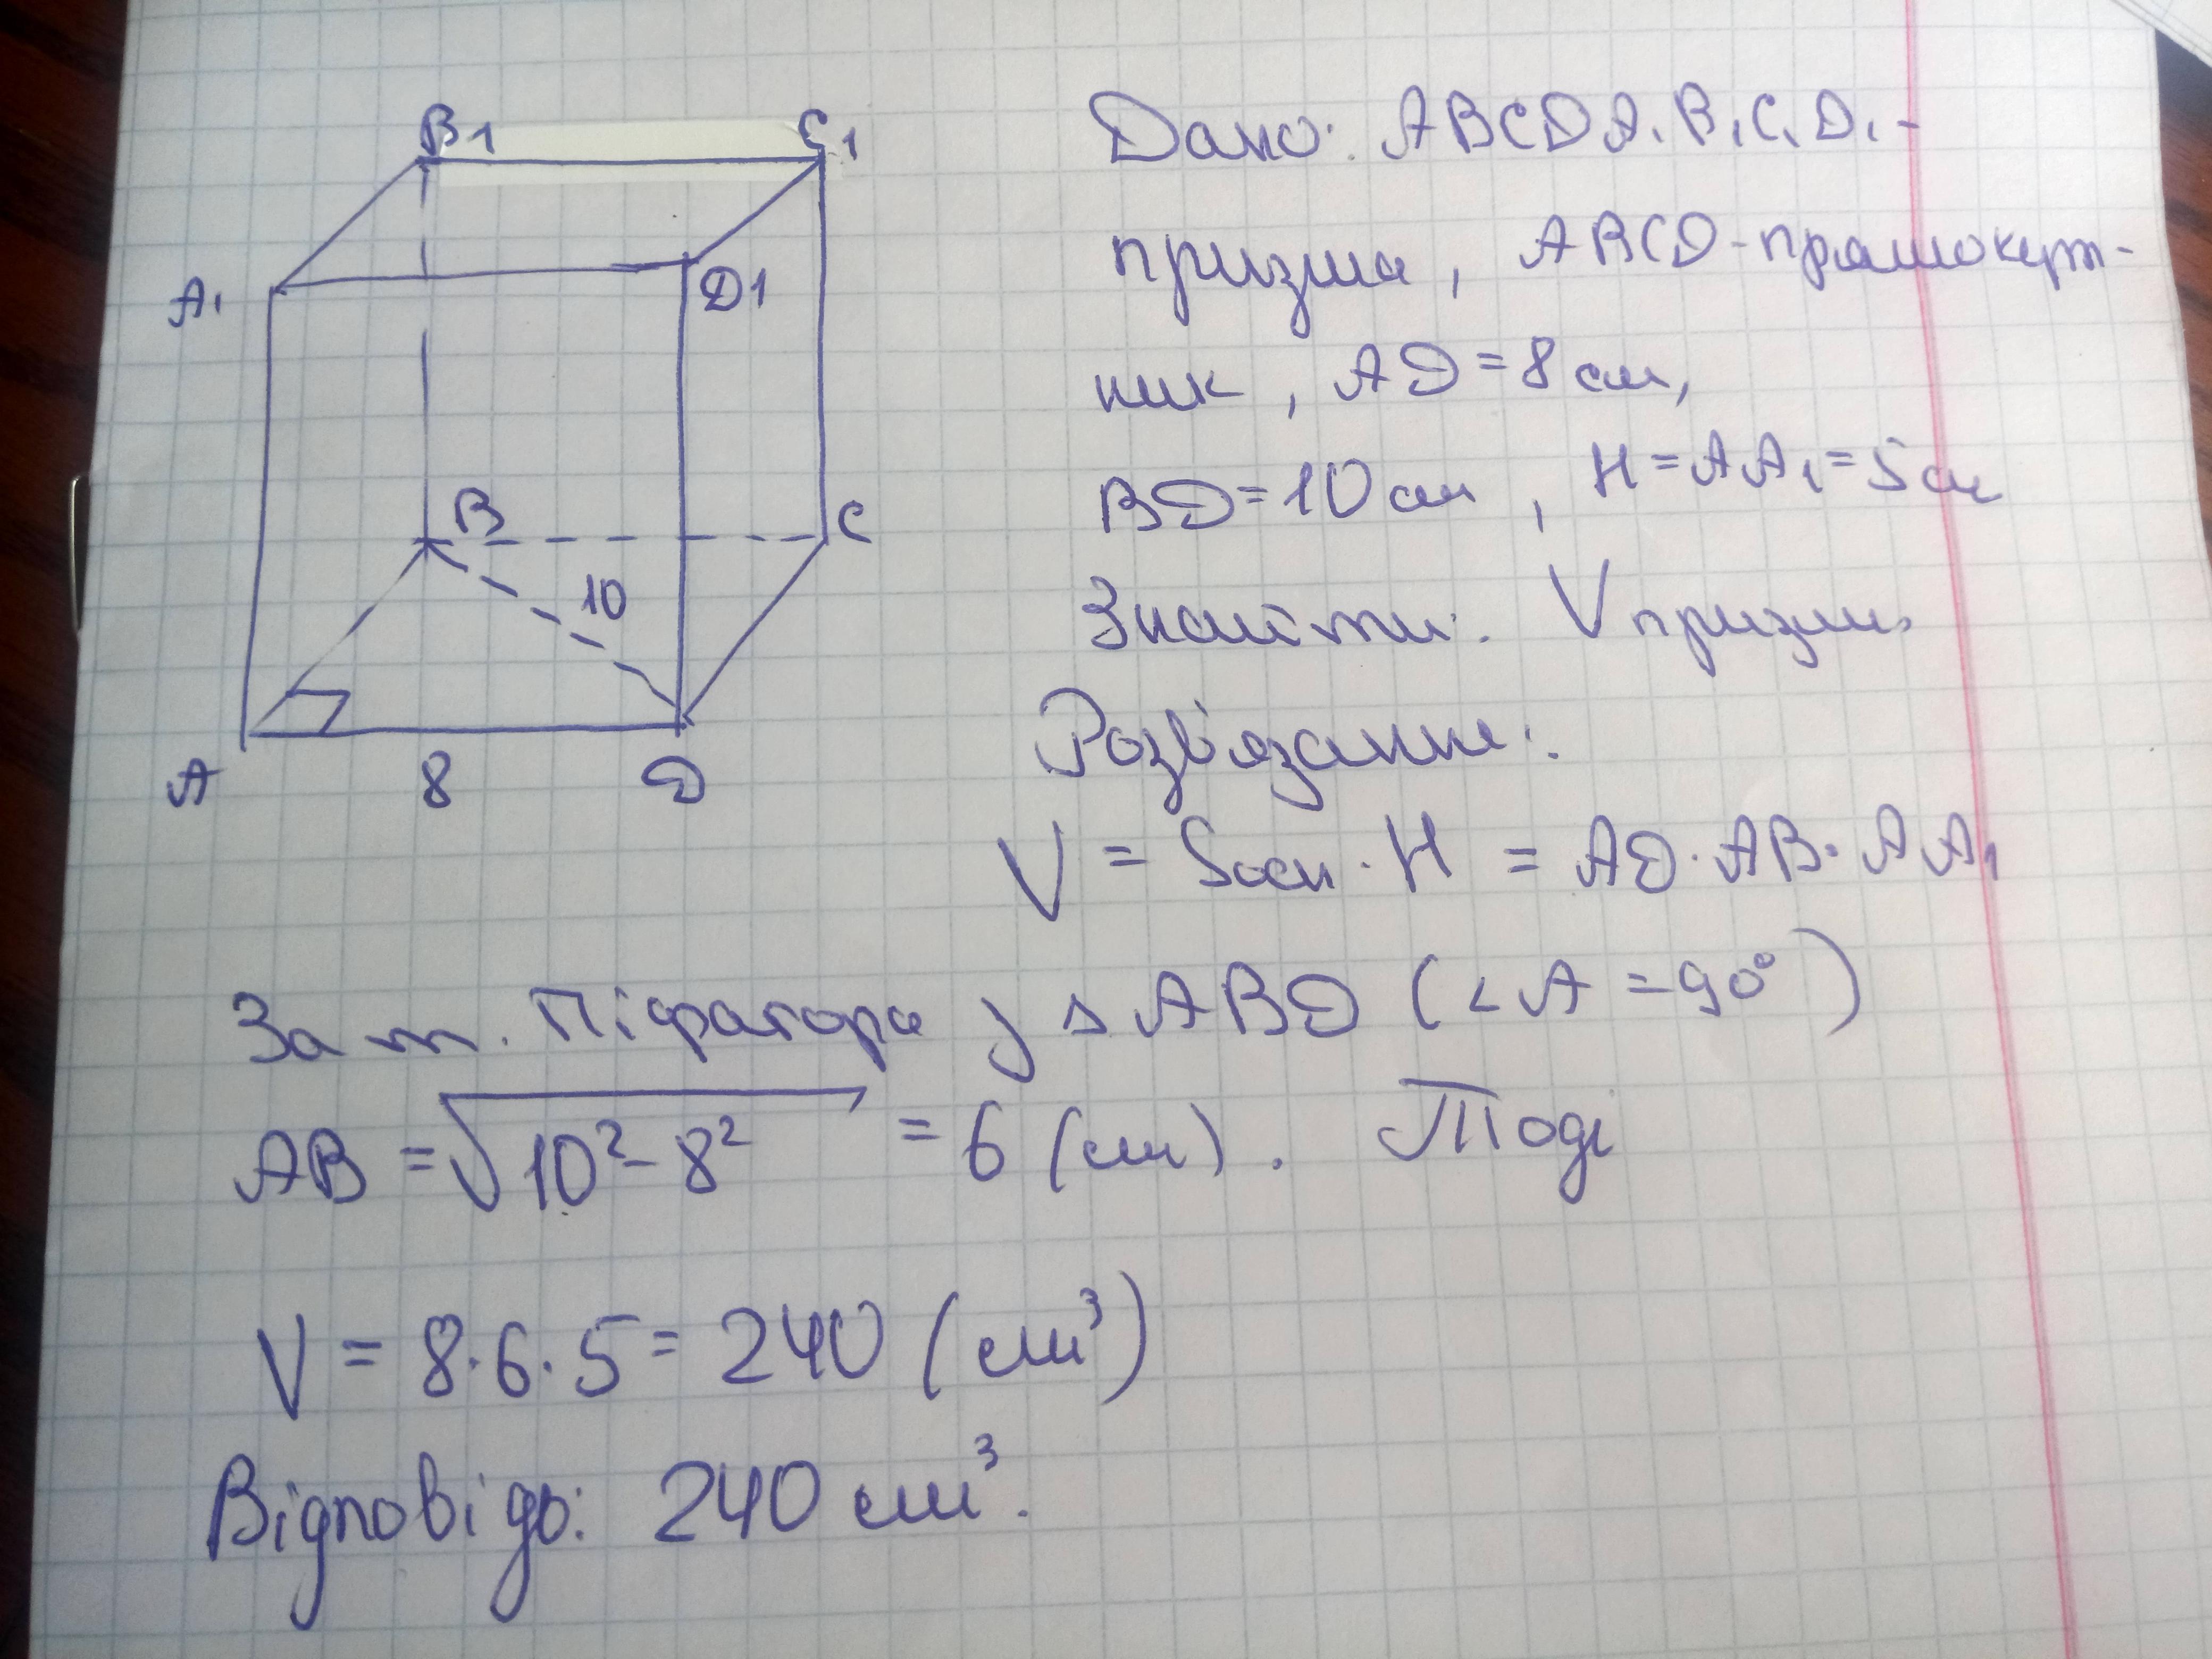 B1 C1
A1 D1
B C
10
A 8 D
Дано: ABCDA1B1C1D1 -
призма, ABCD - прямокут-
ник, AD = 8 см,
BD = 10 см, H = AA1 = 5 см
Знайти: V призми.
Розв'язання:
V = Sосн · H = AD · AB · AA1
За т. Піфагора у △ABD (∠A = 90°)
AB = √10² - 8² = 6 (см). Тоді
V = 8 · 6 · 5 = 240 (см³)
Відповідь: 240 см³.